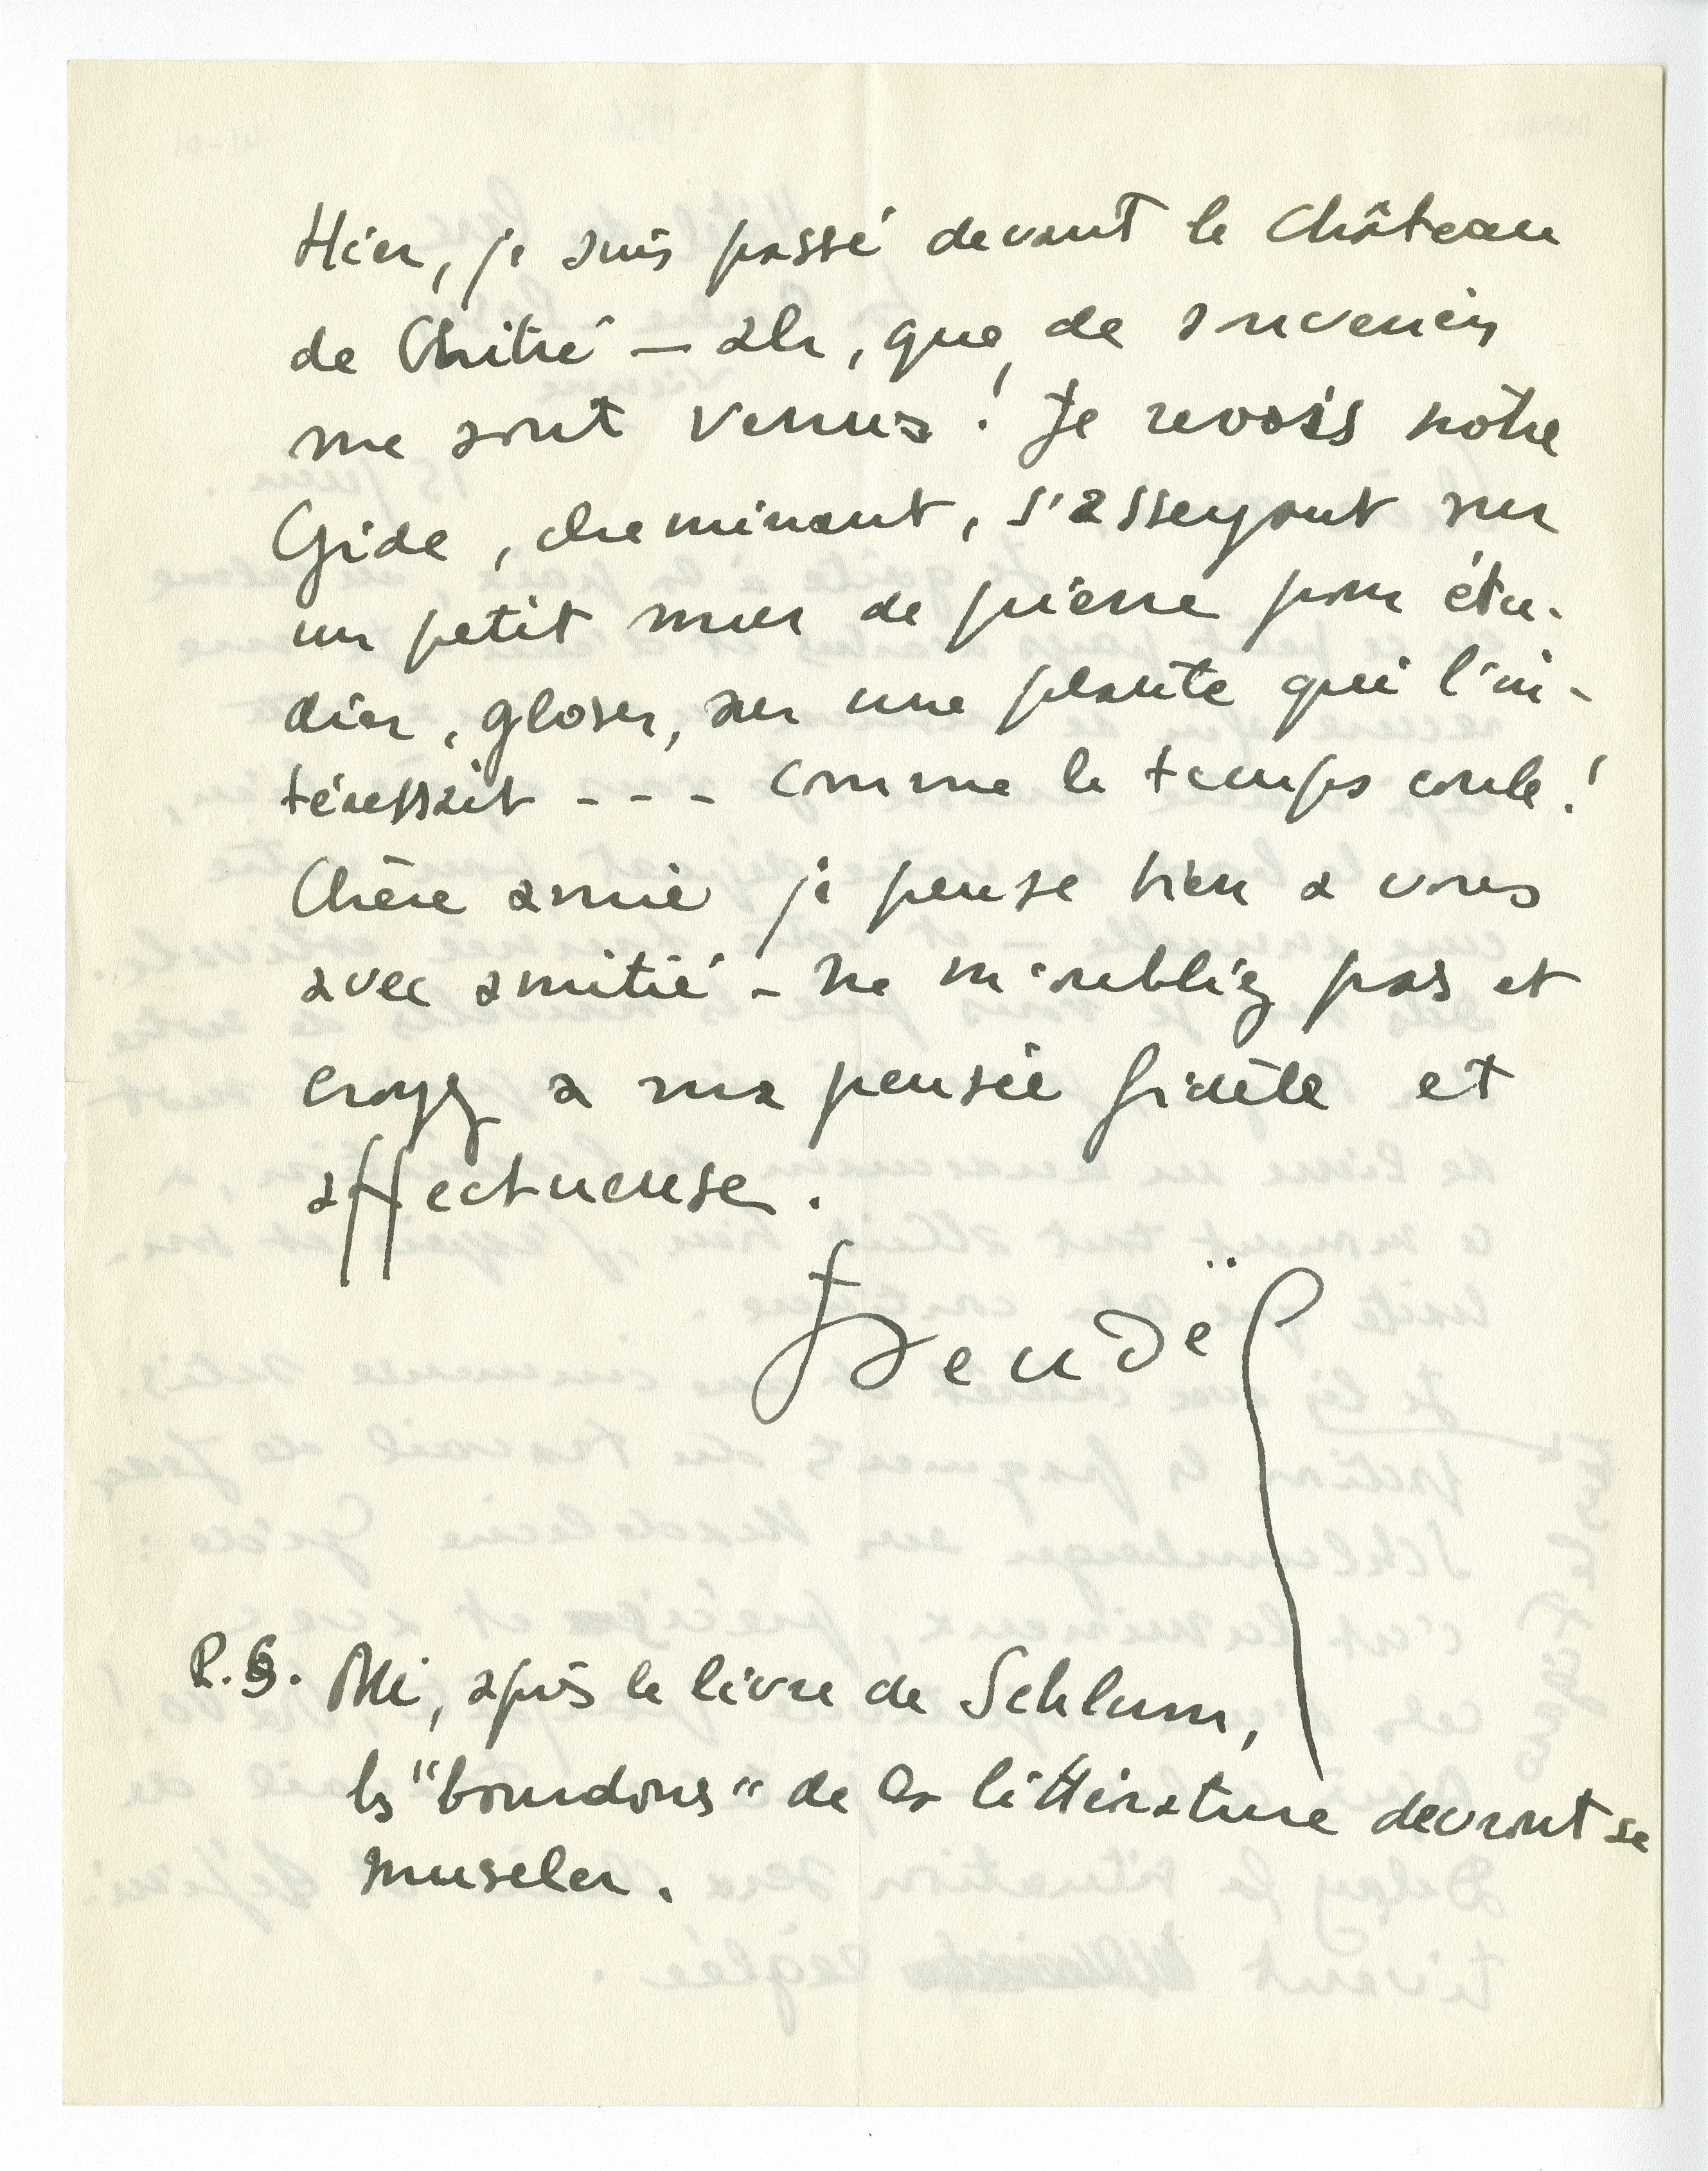 Hier, je suis passé devant le Château
de Chitré — ah, que de souvenirs
me sont venus ! Je revois notre
Gide, cheminant, s'asseyant sur
un petit mur de pierre pour étu-
dier, gloser, sur une plante qui l'in-
téressait - - - Comme le temps coule !
Chère amie je pense bien a vous
avec amitié - ne m'oubliez pas et
croyez a ma pensée fidèle et
affectueuse .
P.S. , après le livre de Schlum,
les "bourdons" de la littérature devront se
museler .